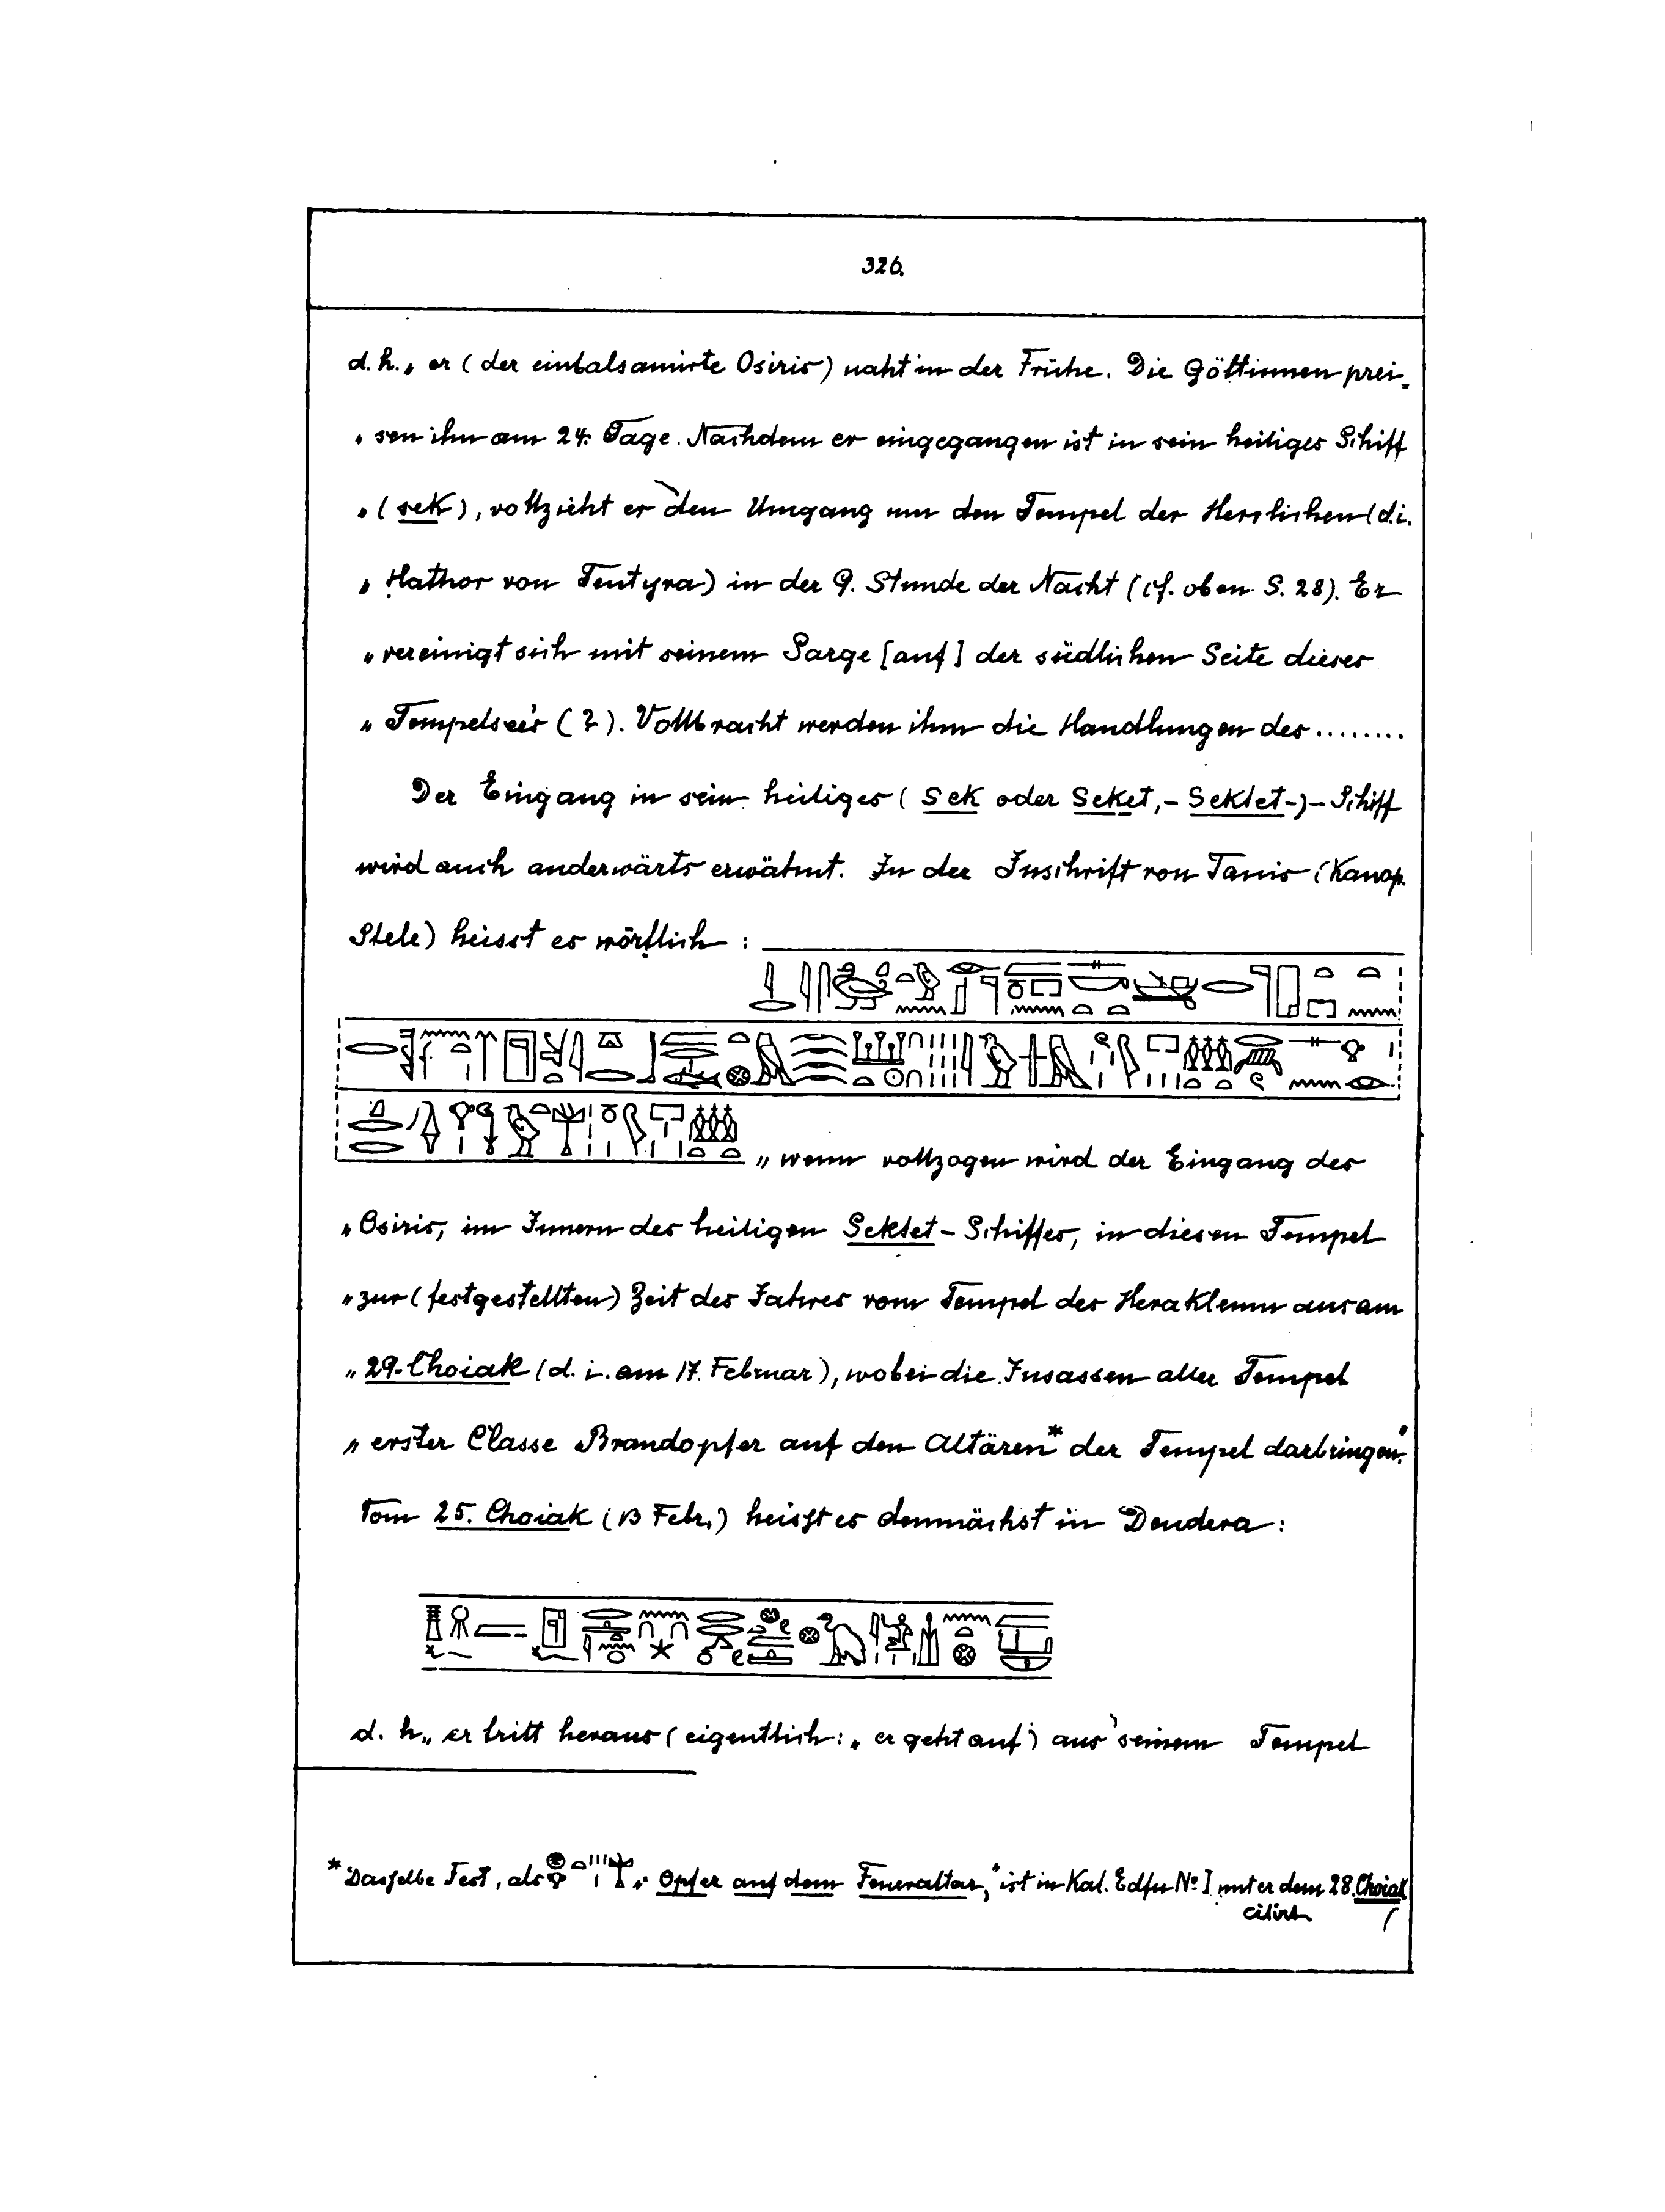 326.
d. h. „ er ( der einbalsamirte Osiris ) naht in der Frühe. Die Göttinnen prei-
„ sen ihn am 24. Tage. Nachdem er eingegangen ist in sein heiliges Schiff
„ ( sek ), vollzieht er den Umgang um den Tempel der Herrlichen ( d. i.
„ Hathor von Tentyra ) in der 9. Stunde der Nacht ( cf. oben S. 28 ). Er
„ vereinigt sich mit seinem Sarge [ auf ] der südlichen Seite dieses
„ Tempelsee's ( ? ). Vollbracht werden ihm die Handlungen des ........
Der Eingang in sein heiliges ( sek oder seket, - Sektet - ) - Schiff
wird auch anderwärts erwähnt. In der Inschrift von Tanis ( Kanop.
Stele ) heisst es wörtlich :
„ wenn vollzogen wird der Eingang des
„ Osiris, im Innern des heiligen Sektet - Schiffes, in diesen Tempel
„ zur ( festgestellten ) Zeit des Jahres vom Tempel des Herakleum aus am
„ 29. Choiak ( d. i. am 17. Februar ), wobei die Insassen aller Tempel
„ erster Classe Brandopfer auf den Altären * der Tempel darbringen."
Vom 25. Choiak ( 13 Febr. ) heisst es demnächst in Dendera :
d. h. „ er tritt heraus ( eigentlich : „ er geht auf ) aus seinem Tempel
* Dasselbe Fest, als „ Opfer auf dem Feueraltar, " ist in Kal. Edfu No I unter dem 28. Choiak
citirt